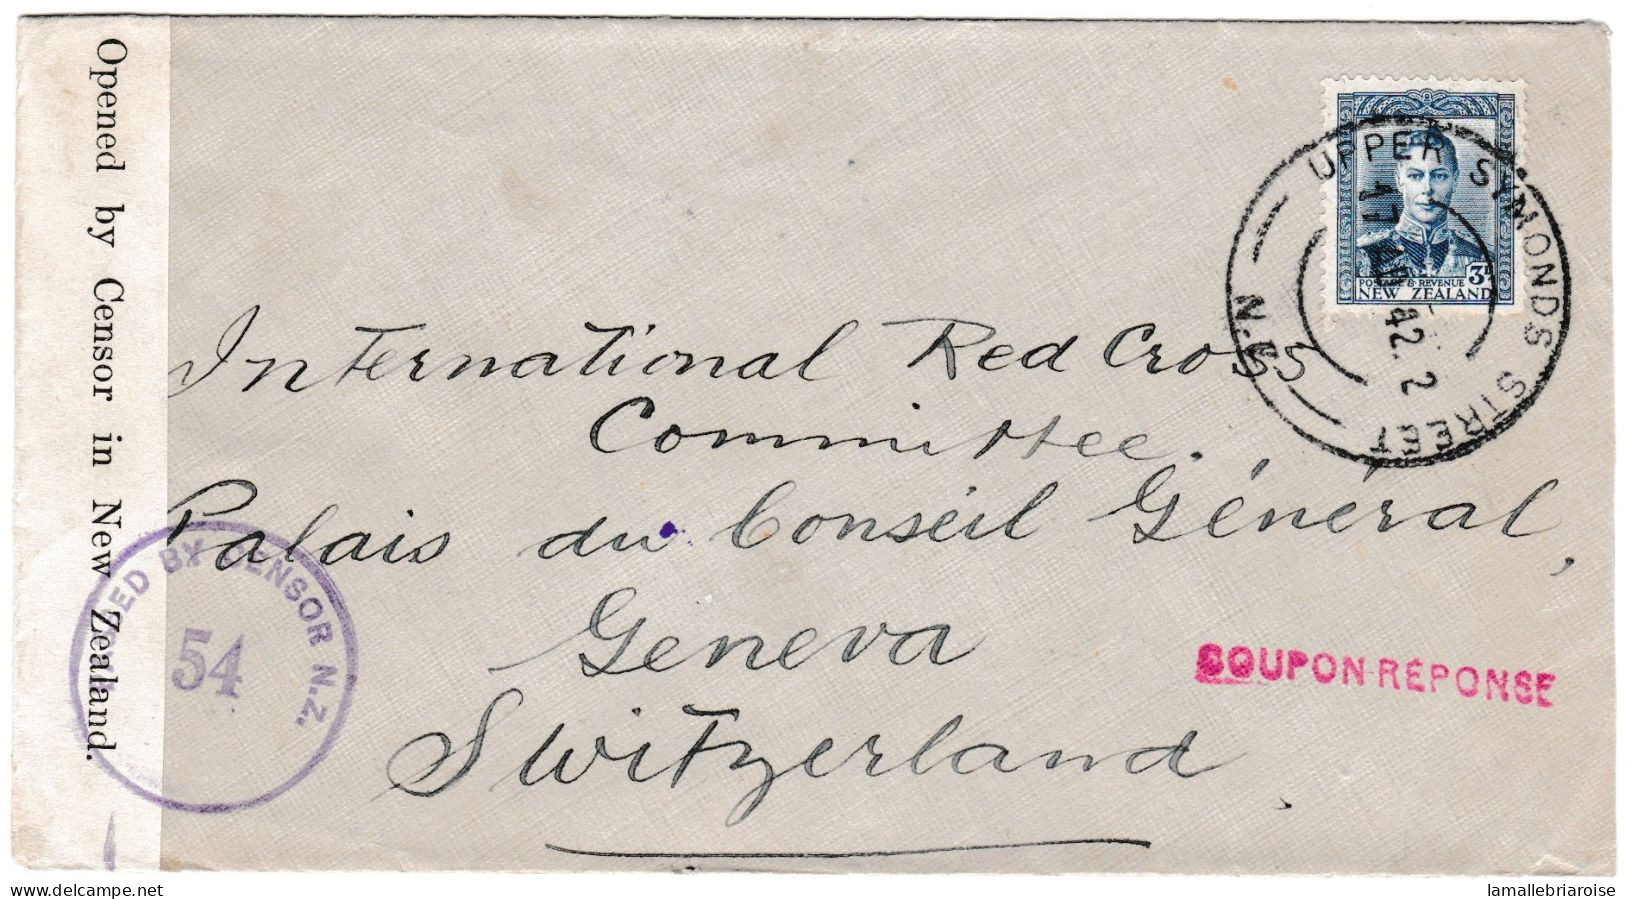 Opened by Censor in New Zealand.
BY CENSOR N.Z.
54
UPPER SYMONDS STREET
N.Z.
17 42. 2
3D
POSTAGE & REVENUE
NEW ZEALAND
International Red Cross
Committee.
Palais du Conseil Général,
Geneva
Switzerland
COUPON-RÉPONSE
lamallebriaroise